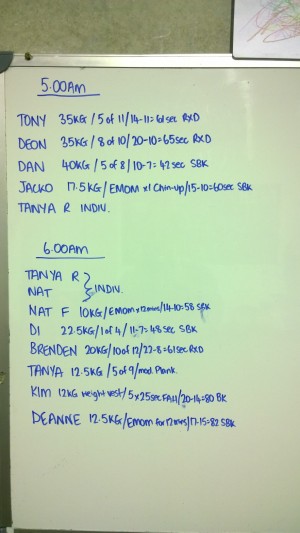 5:00AM
TONY 35KG / 5 of 11 / 14-11 = 61sec RXD
DEON 35KG / 8 of 10 / 20-10 = 65sec RXD
DAN 40KG / 5 of 8 / 10-7 = 42sec SBK
JACKO 17.5KG / EMOM x1 Chin-up / 15-10 = 60sec SBK
TANYA R INDIV.
6:00AM
TANYA R } INDIV.
NAT
NAT F 10KG / EMOM x 12mins / 14-10 = 58 SBK
DI 22.5KG / 1 of 4 / 11-7 = 48sec SBK
BRENDEN 20KG / 10 of 12 / 22-8 = 61sec RXD
TANYA 12.5KG / 5 of 9 / mod. Plank.
KIM 12KG weight vest / 5 x 25sec FAH / 20-14 = 80 BK
DEANNE 12.5KG / EMOM for 12mins / 17-15 = 82 SBK